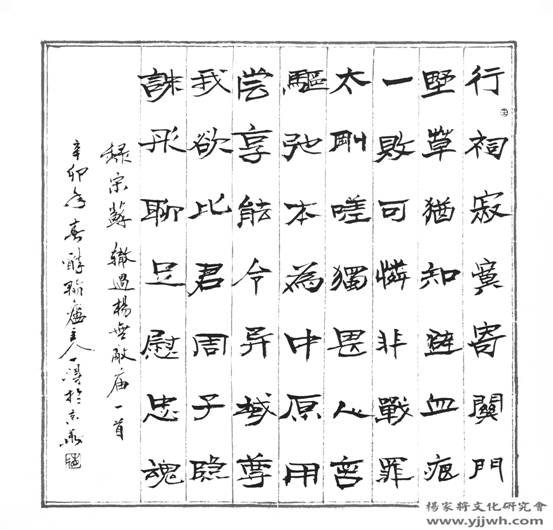 行祠寂寞寄關門
墅草猶知避血痕
一敗可憐非戰罪
太剛嗟獨畏人言
驅弛本為中原用
尝享能令异域尊
我欲比君周子隐
誅彤聊足慰忠魂
録宋蘇轍過楊無敵庙一首
辛卯年春醉翰廬主人於京華
楊家將文化研究會
www.yjjwh.com